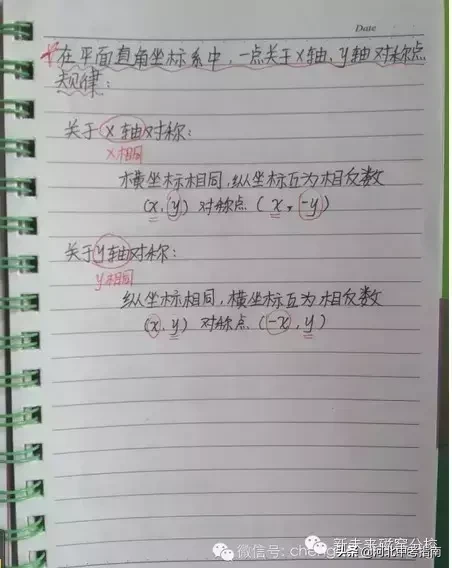 Date
*在平面直角坐标系中，一点关于x轴、y轴对称点
规律：
关于x轴对称：
x相同
横坐标相同，纵坐标互为相反数
(x, y) 对称点 (x, -y)
关于y轴对称：
y相同
纵坐标相同，横坐标互为相反数
(x, y) 对称点 (-x, y)
新未来磁窑分校
微信号: che
头条@河北中考指南